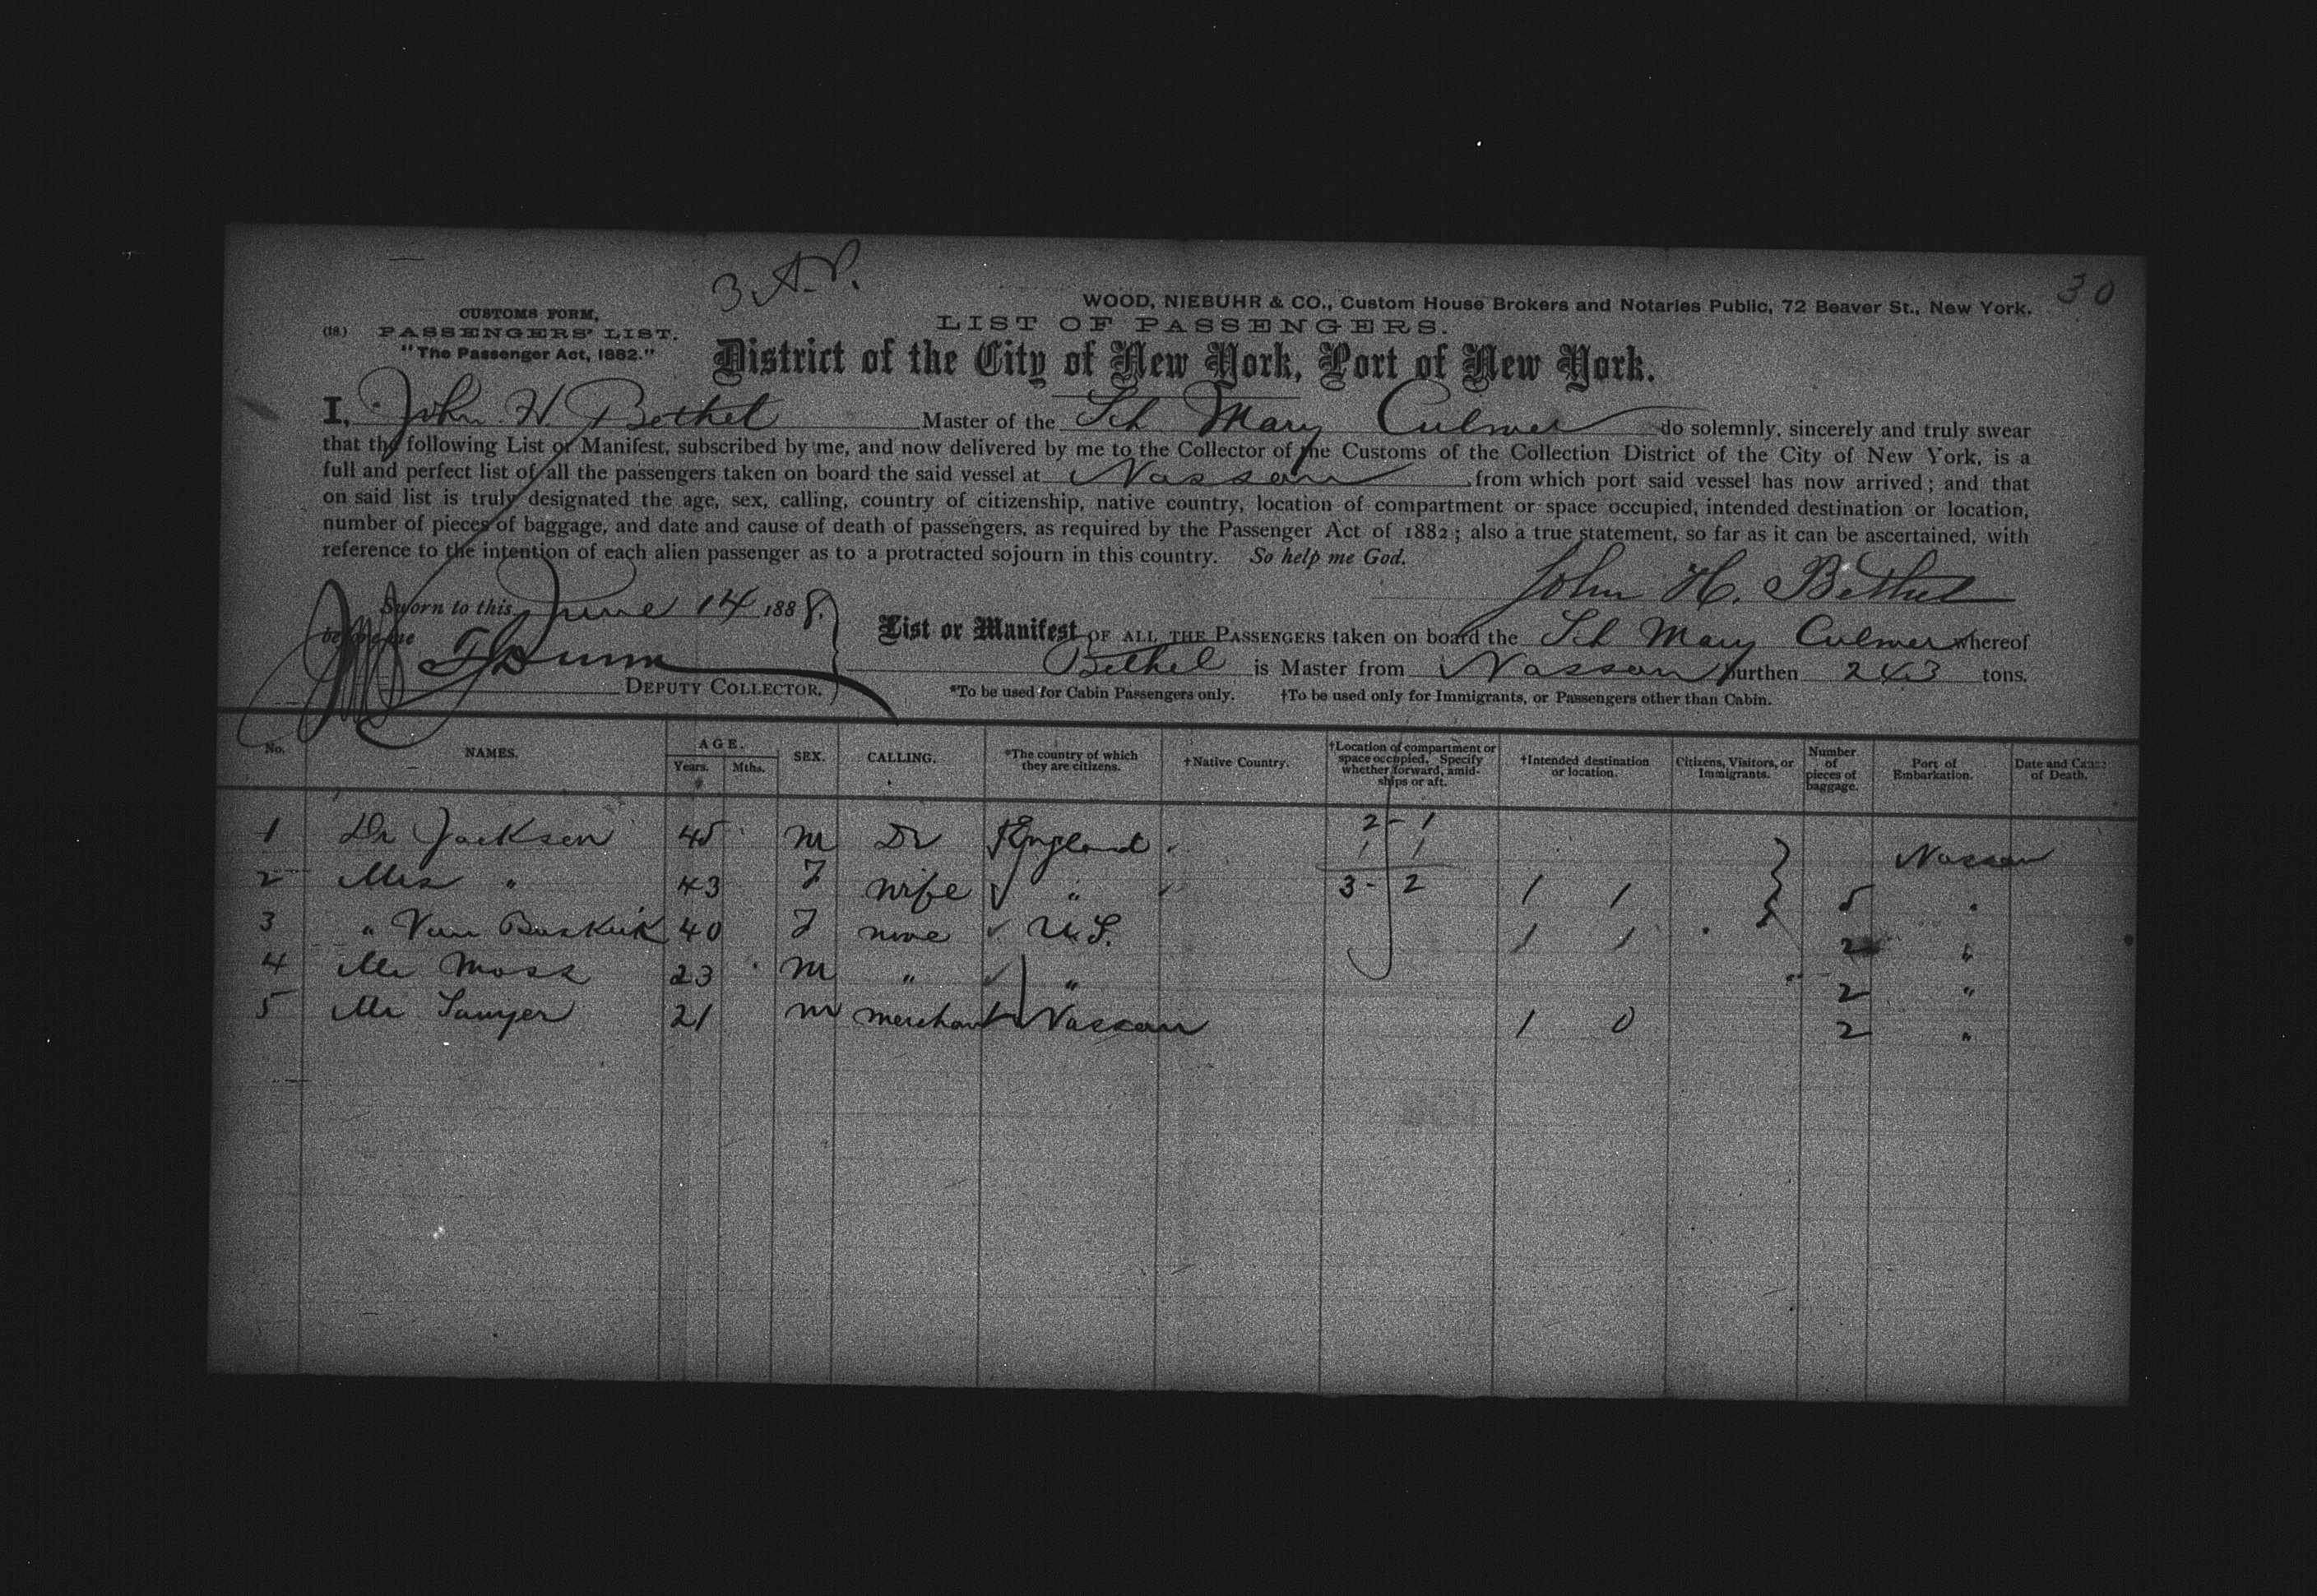 3 A.P.
30
WOOD, NIEBUHR & CO., Custom House Brokers and Notaries Public, 72 Beaver St., New York.
CUSTOMS FORM,
(18.) PASSENGERS' LIST.
"The Passenger Act, 1882."
LIST OF PASSENGERS.
District of the City of New York, Port of New York.
I, John H. Bethel Master of the Sch Mary Culmer do solemnly, sincerely and truly swear
that the following List or Manifest, subscribed by me, and now delivered by me to the Collector of the Customs of the Collection District of the City of New York, is a
full and perfect list of all the passengers taken on board the said vessel at Nassau from which port said vessel has now arrived; and that
on said list is truly designated the age, sex, calling, country of citizenship, native country, location of compartment or space occupied, intended destination or location,
number of pieces of baggage, and date and cause of death of passengers, as required by the Passenger Act of 1882; also a true statement, so far as it can be ascertained, with
reference to the intention of each alien passenger as to a protracted sojourn in this country. So help me God.
John H. Bethel
Sworn to this June 14 1888.
before me
Dunn
DEPUTY COLLECTOR.
List or Manifest OF ALL THE PASSENGERS taken on board the Sch Mary Culmer whereof
Bethel is Master from Nassau burthen 243 tons.
*To be used for Cabin Passengers only. †To be used only for Immigrants, or Passengers other than Cabin.
No. NAMES. AGE. Years. Mths. SEX. CALLING. *The country of which they are citizens. †Native Country. †Location of compartment or space occupied. Specify whether forward, amidships or aft. †Intended destination or location. Citizens, Visitors, or Immigrants. Number of pieces of baggage. Port of Embarkation. Date and Cause of Death.
1 Dr Jackson 45 M Dr England 2 - 1 Nassau
1 1
2 Mrs " 43 F wife " 3 - 2 1 1 5 "
3 " Van Buskirk 40 F none U.S. 1 1 2 "
4 Mr Moss 23 M " " 2 "
5 Mr Sawyer 21 M merchant Nassau 1 0 2 "